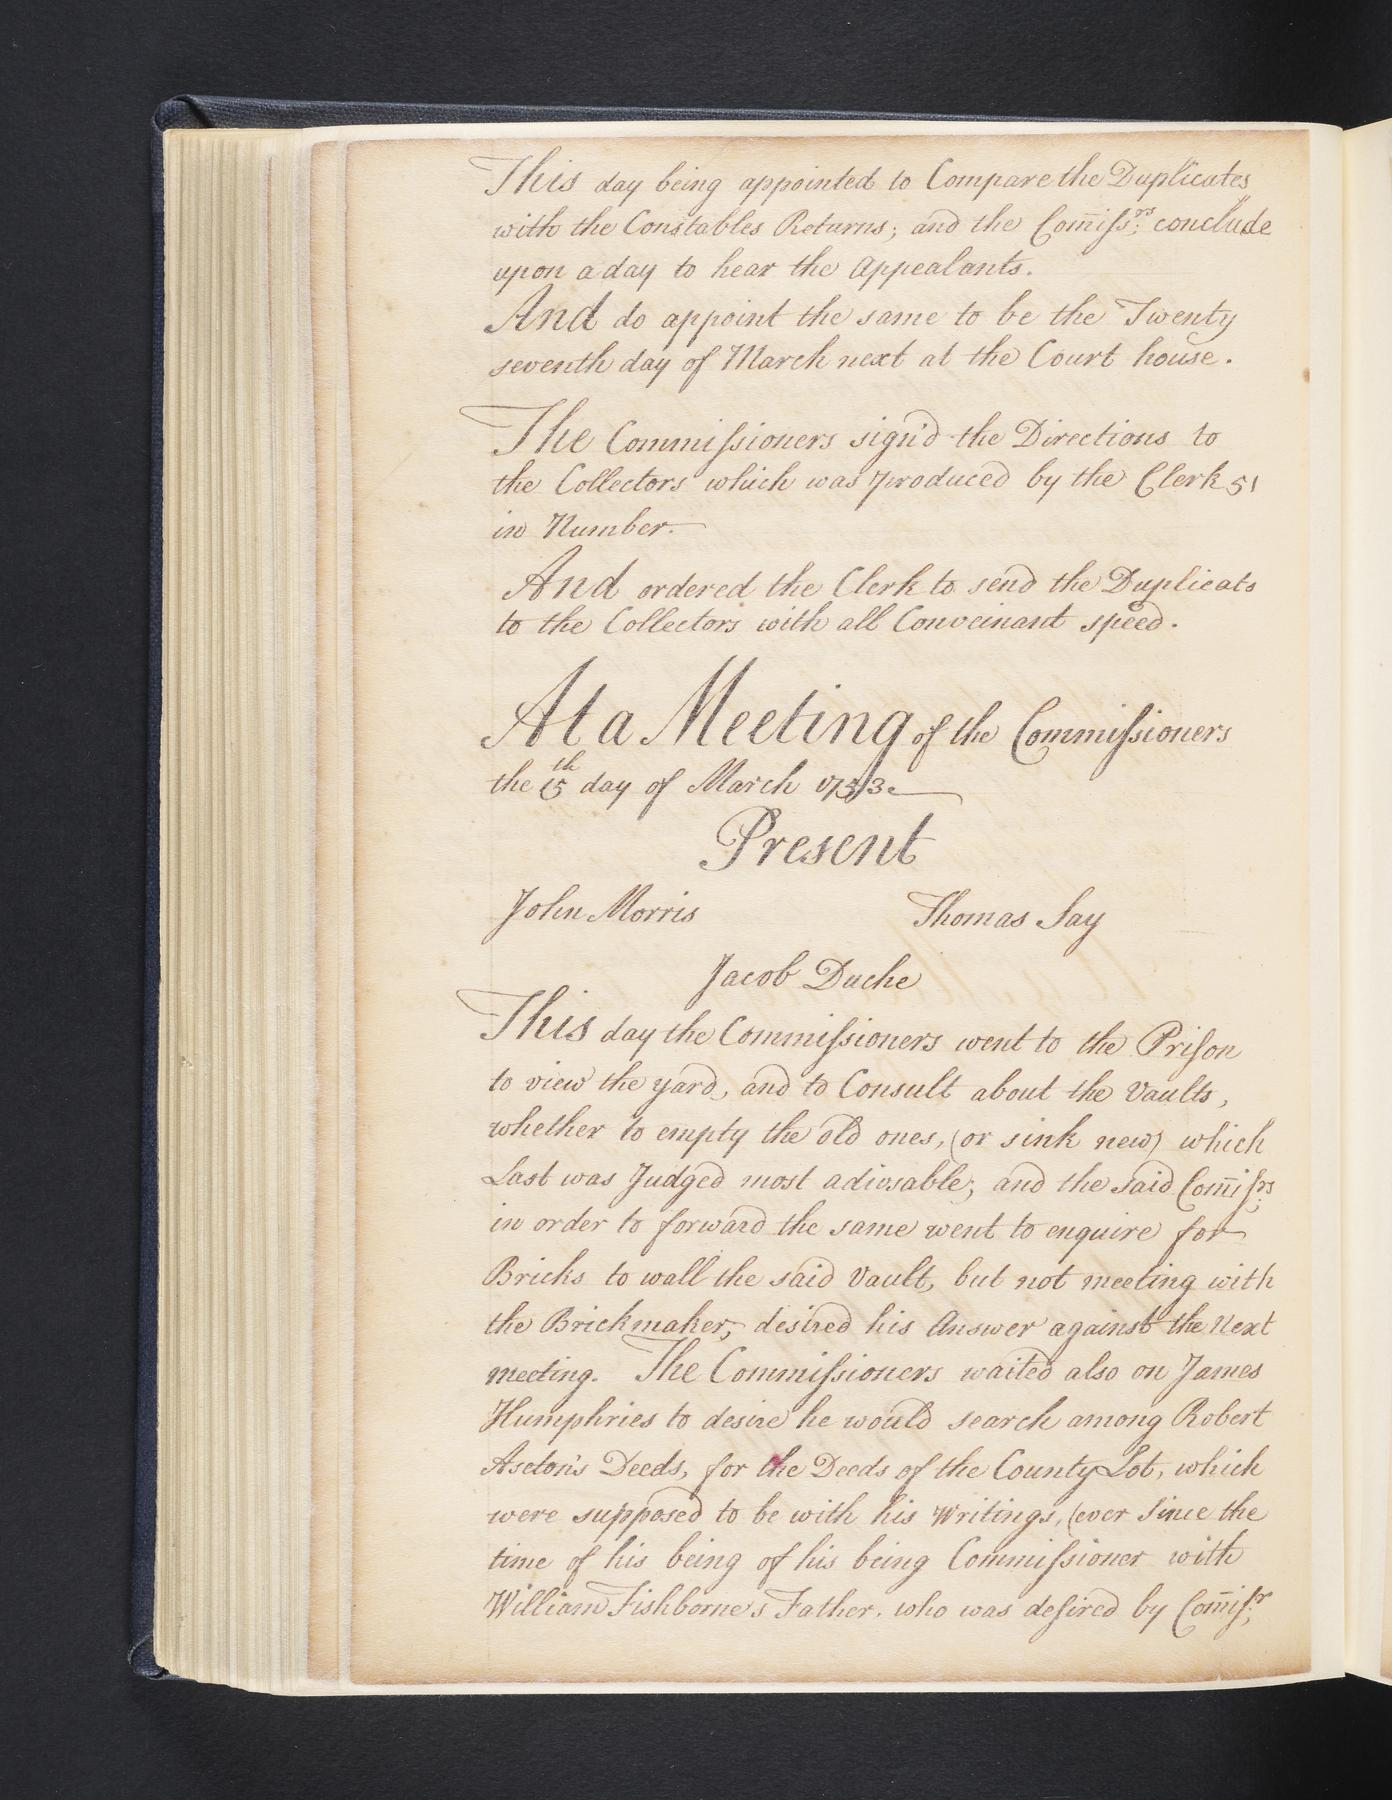 This day being appointed to Compare the Duplicates
with the Constables Returns; and the Com̄iſs:rs conclude
upon a day to hear the Appealants.
And do appoint the same to be the Twenty
seventh day of March next at the Court house.
The Commiſsioners sign'd the Directions to
the Collectors which was produced by the Clerk 51
in Number.
And ordered the Clerk to send the Duplicats
to the Collectors with all Conveinant speed.
At a Meeting of the Commiſsioners
the 15th day of March 1753
Present
John Morris Thomas Say
Jacob Duche
This day the Commiſsioners went to the Priſon
to view the yard, and to Consult about the Vaults,
whether to empty the old ones, (or sink new) which
Last was Judged most adivsable; and the said Com̄iſrs
in order to forward the same went to enquire for
Bricks to wall the said Vault, but not meeting with
the Brickmaker, desired his Answer against the Next
meeting. The Commiſsioners waited also on James
Humphries to desire he would search among Robert
Aseton's Deeds, for the Deeds of the County Lot, which
were supposed to be with his Writings, (ever Since the
time of his being of his being Commiſsioner with
William Fishborne's Father, who was deſired by Com̄iſr